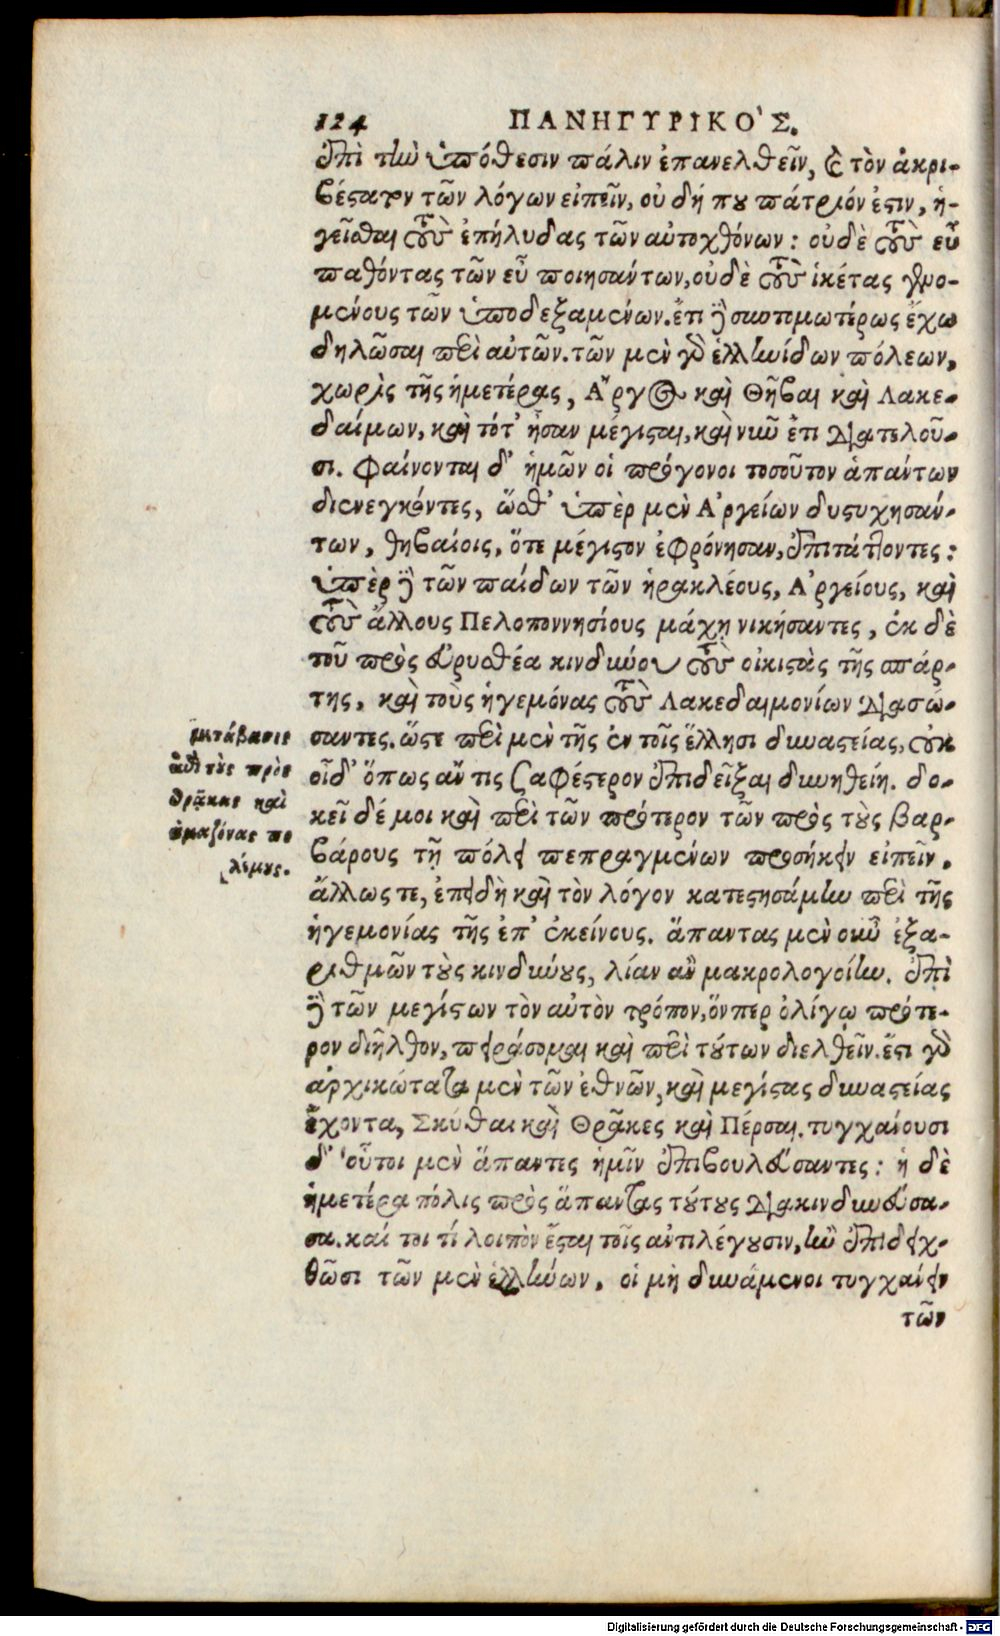 124 ΠΑΝΗΓΥΡΙΚΟ`Σ.
ἐπὶ τὴν ὑπόθεσιν πάλιν ἐπανελθεῖν, καὶ τὸν ἀκρι-
βέστατον τῶν λόγων εἰπεῖν, οὐ δή που πάτριόν ἐστιν, ἡ-
γεῖσθαι τοὺς ἐπήλυδας τῶν αὐτοχθόνων: οὐδὲ τοὺς εὖ
παθόντας τῶν εὖ ποιησάντων, οὐδὲ τοὺς ἱκέτας γενο-
μένους τῶν ὑποδεξαμένων. ἔτι δὲ συντομωτέρως ἔχω
δηλῶσαι περὶ αὐτῶν. τῶν μὲν γὰρ ἑλληνίδων πόλεων,
χωρὶς τῆς ἡμετέρας, Ἄργος καὶ Θῆβαι καὶ Λακε-
δαίμων, καὶ τότ' ἦσαν μέγισται, καὶ νῦν ἔτι διατελοῦ-
σι. Φαίνονται δ' ἡμῶν οἱ πρόγονοι τοσοῦτον ἁπάντων
διενεγκόντες, ὥσθ' ὑπὲρ μὲν Ἀργείων δυστυχησάν-
των, θηβαίοις, ὅτε μέγιστον ἐφρόνησαν, ἐπιτάττοντες:
ὑπὲρ δὲ τῶν παίδων τῶν ἡρακλέους, Ἀργείους, καὶ
τοὺς ἄλλους Πελοποννησίους μάχῃ νικήσαντες, ἐκ δὲ
τοῦ πρὸς εὐρυσθέα κινδύνου τοὺς οἰκιστὰς τῆς σπάρ-
της, καὶ τοὺς ἡγεμόνας τοὺς Λακεδαιμονίων διασώ-
σαντες. ὥστε περὶ μὲν τῆς ἐν τοῖς ἕλλησι δυναστείας, οὐκ
οἶδ' ὅπως ἄν τις σαφέστερον ἐπιδεῖξαι δυνηθείη. δο-
κεῖ δέ μοι καὶ περὶ τῶν πρότερον τῶν πρὸς τοὺς βαρ-
βάρους τῇ πόλει πεπραγμένων προσήκειν εἰπεῖν.
ἄλλως τε, ἐπειδὴ καὶ τὸν λόγον κατεστησάμην περὶ τῆς
ἡγεμονίας τῆς ἐπ' ἐκείνους. ἅπαντας μὲν οὖν ἐξα-
ριθμῶν τοὺς κινδύνους, λίαν ἂν μακρολογοίην. ἐπὶ
δὲ τῶν μεγίστων τὸν αὐτὸν τρόπον, ὅνπερ ὀλίγῳ πρότε-
ρον διῆλθον, πειράσομαι καὶ περὶ τούτων διελθεῖν. ἔστι γὰρ
ἀρχικώτατα μὲν τῶν ἐθνῶν, καὶ μεγίστας δυναστείας
ἔχοντα, Σκύθαι καὶ Θρᾷκες καὶ Πέρσαι. τυγχάνουσι
δ' οὗτοι μὲν ἅπαντες ἡμῖν ἐπιβουλεύσαντες: ἡ δὲ
ἡμετέρα πόλις πρὸς ἅπαντας τούτους διακινδυνεύσα-
σα. καί τοι τί λοιπὸν ἔσται τοῖς ἀντιλέγουσιν, ἢν ἐπιδειχ-
θῶσι τῶν μὲν ἑλλήνων, οἱ μὴ δυνάμενοι τυγχάνειν
τῶν
μετάβασις
ἐπὶ τοὺς πρὸς
θρᾷκας καὶ
ἀμαζόνας πο
λέμους.
Digitalisierung gefördert durch die Deutsche Forschungsgemeinschaft - DFG